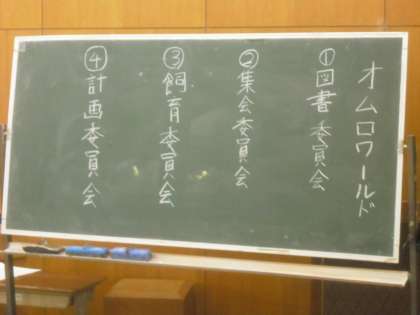 オムロワールド
①図書委員会
②集会委員会
③飼育委員会
④計画委員会